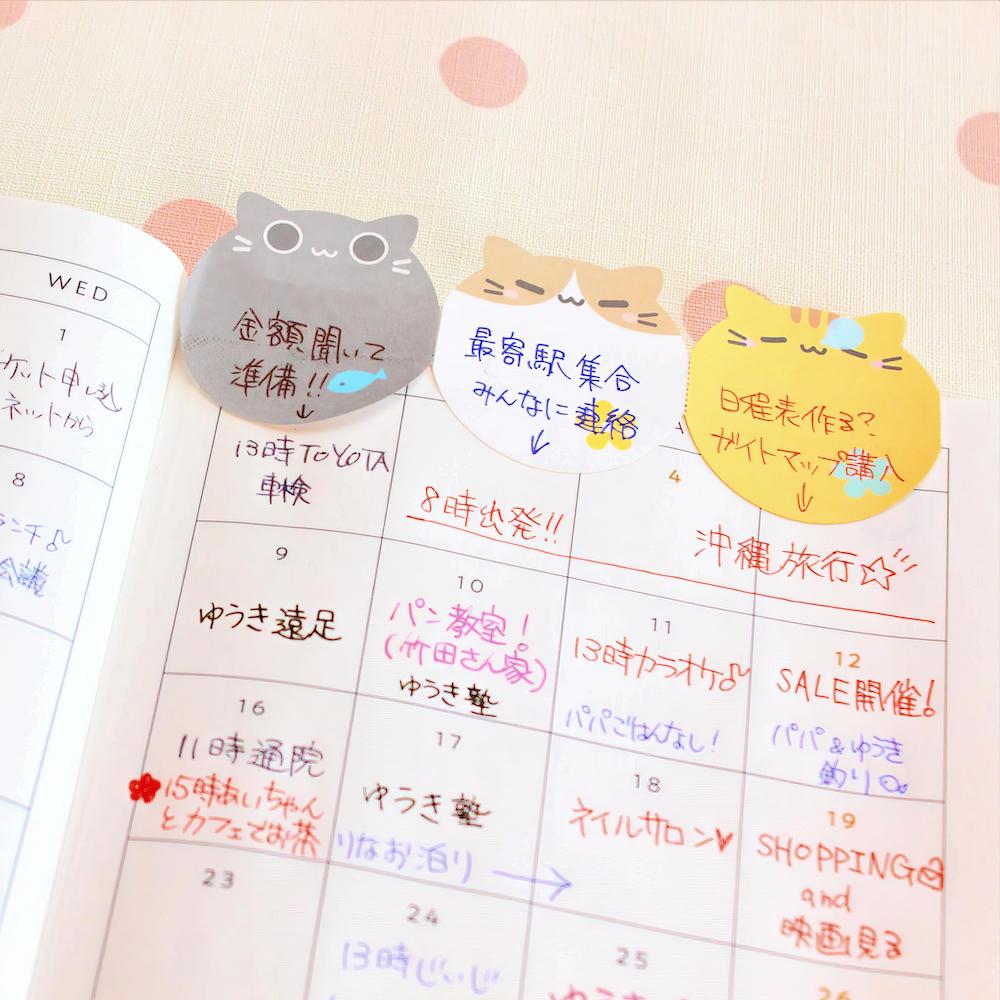 金額聞いて
準備!!
↓
最寄駅集合
みんなに連絡
↓
日程表作る?
ガイトマップ講入
↓
WED
1
ケット申し込
ネットから
13時TOYOTA
車検
8時出発!!
4
沖縄旅行☆
8
ランチ♪
会議
9
ゆうき遠足
10
パン教室!
(竹田さん家)
ゆうき塾
11
13時カラオケ♪
パパごはんなし!
12
SALE開催!
パパ&ゆうき
釣り
16
11時通院
15時あいちゃん
とカフェでお茶
17
ゆうき塾
りなお泊り →
18
ネイルサロン♥
19
SHOPPING
and
映画見る
23
24
13時じいじ
25
ゆうき
26